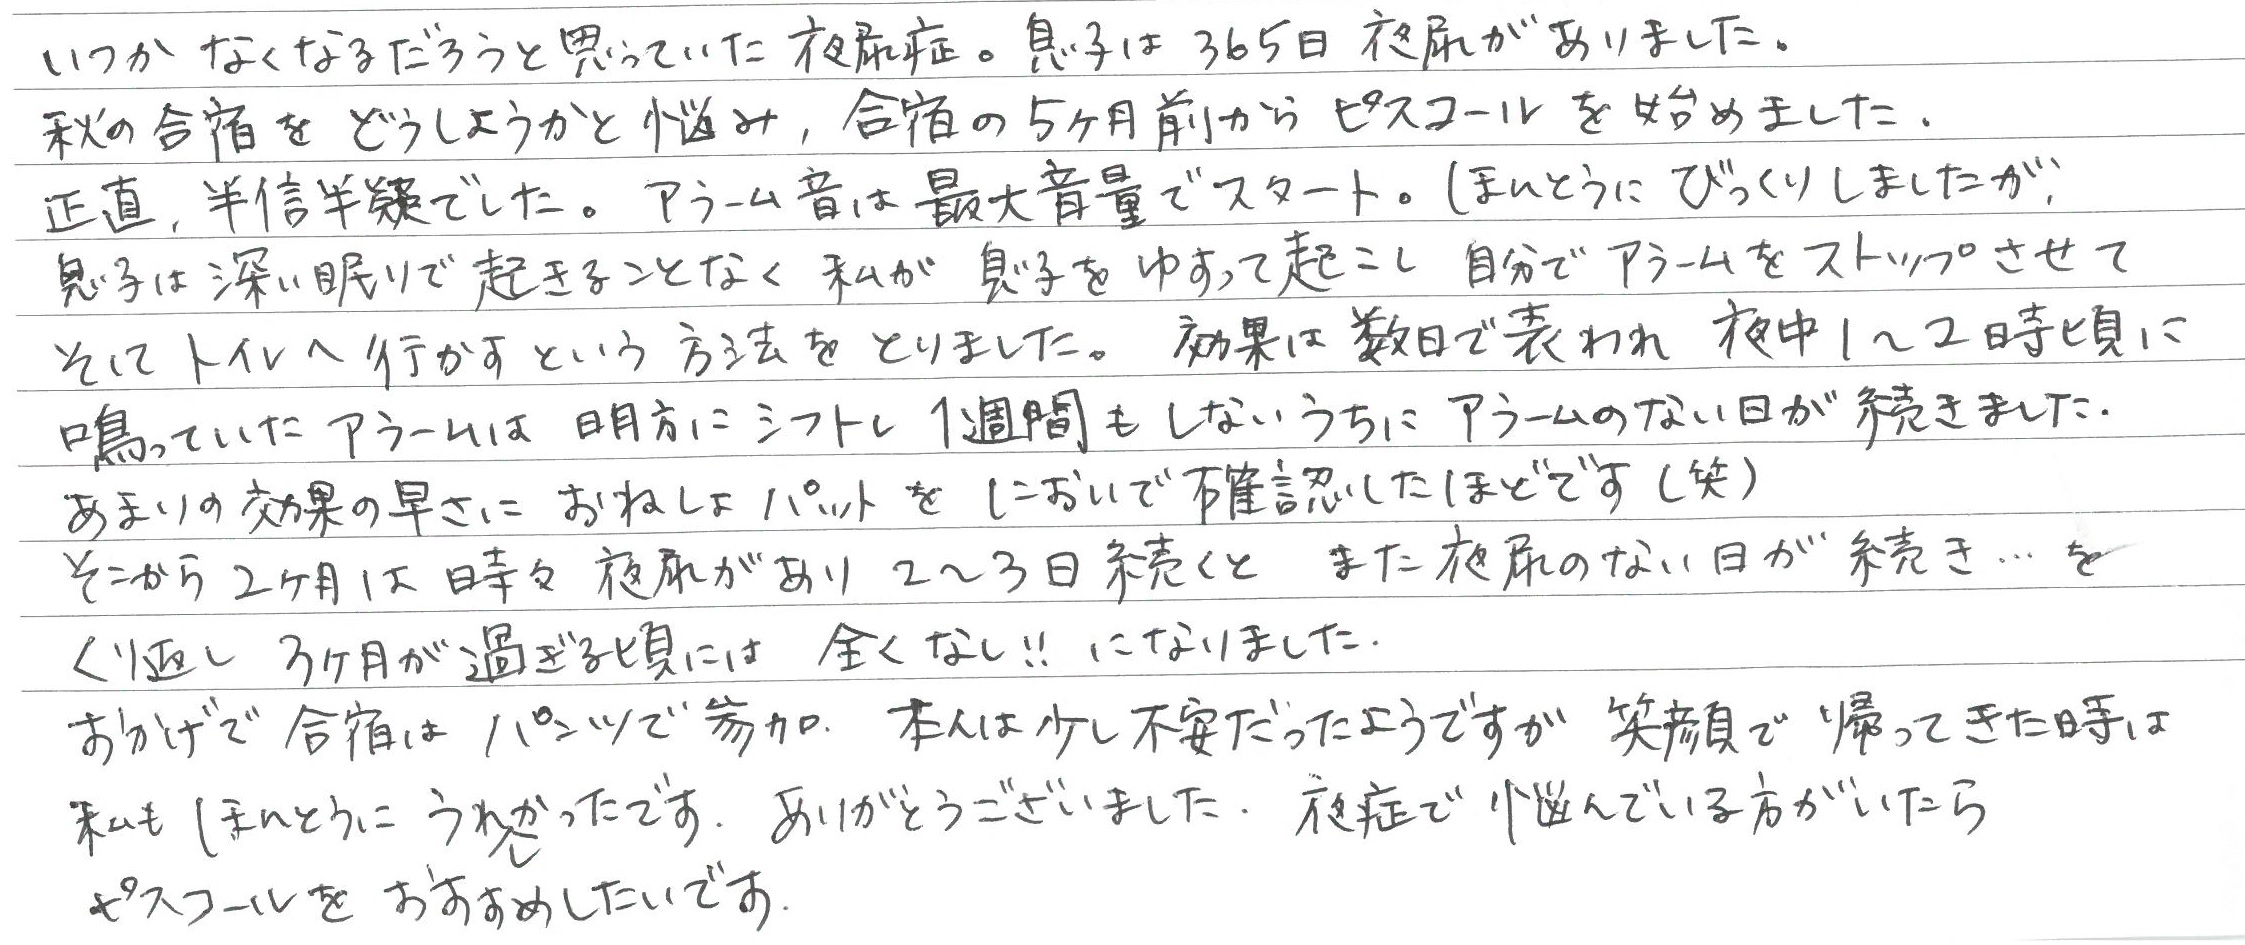 いつか なくなるだろうと思っていた 夜尿症。息子は 365日 夜尿がありました。
秋の合宿を どうしようかと 悩み, 合宿の 5ケ月前から ピスコールを始めました.
正直, 半信半疑でした。 アラーム音は 最大音量でスタート。ほんとうに びっくりしましたが,
息子は深い眠りで 起きることなく 私が 息子を ゆすって起こし 自分でアラームをストップさせて
そして トイレへ行かすという 方法を とりました。 効果は数日で表われ 夜中1～2時頃に
鳴っていた アラームは 明方に シフトし 1週間も しないうちに アラームのない日が 続きました.
あまりの効果の早さに おねしょパットを においで確認したほどです(笑)
そこから 2ケ月は 時々 夜尿があり 2～3日続くと また夜尿のない日が 続き…を
くり返し 3ケ月が過ぎる頃には 全くなし!! になりました.
おかげで 合宿は パンツで参加. 本人は少し不安だったようですが 笑顔で 帰ってきた時は
私も ほんとうに うれしかったです. ありがとうございました. 夜症で 悩んでいる方がいたら
ピスコールを おすすめしたいです.